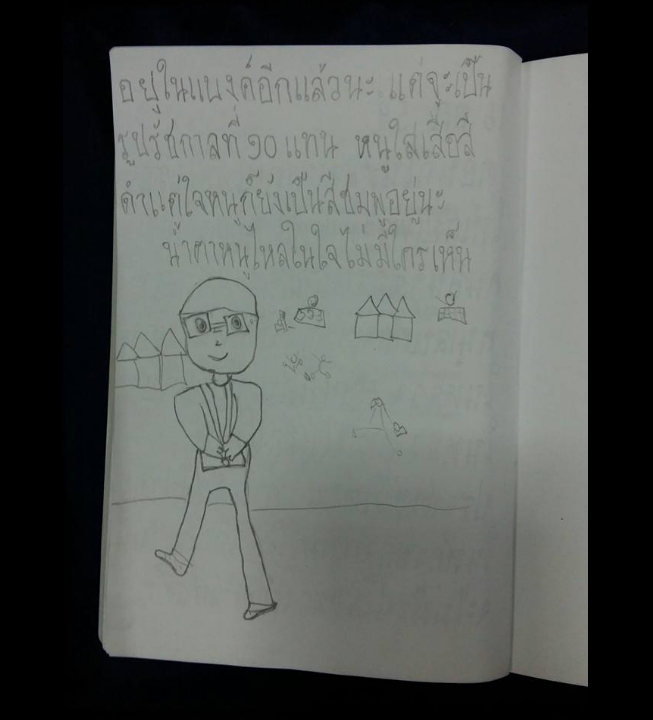 อยู่ในแบงค์อีกแล้วนะ แต่จะเป็น
รูปรัชกาลที่ ๑๐ แทน หนูใส่เสื้อสี
ดำแต่ใจหนูก็ยังเป็นสีชมพูอยู่นะ
น้ำตาหนูไหลในใจไม่มีใครเห็น